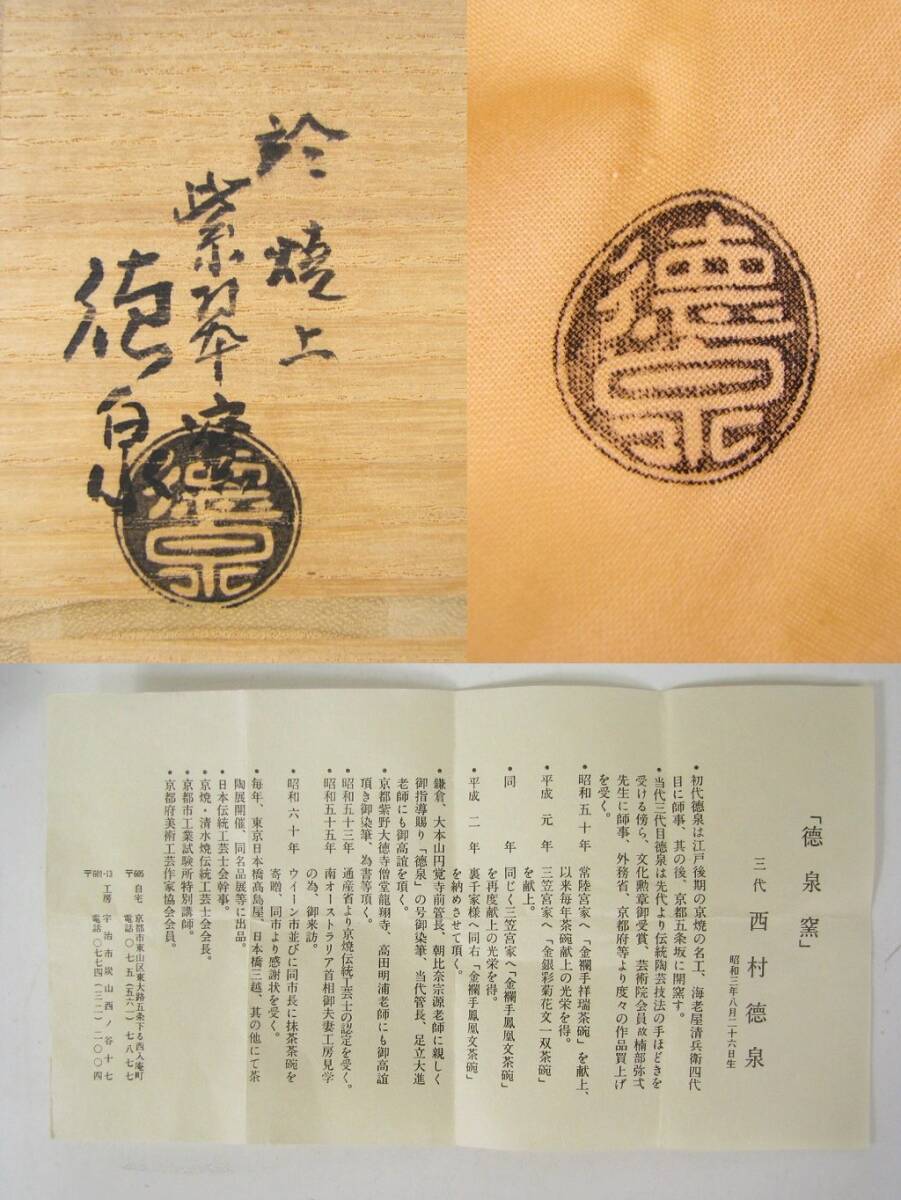 於 燒上
紫翠窯
徳泉
德泉
德泉
「德泉窯」
三代 西村德泉
昭和三年八月二十六日生
• 初代德泉は江戸後期の京焼の名工、海老屋清兵衛四代
目に師事、其の後、京都五条坂に開窯す。
• 当代三代目德泉は先代より伝統陶芸技法の手ほどきを
受ける傍ら、文化勲章御受賞、芸術院会員故楠部弥弌
先生に師事、外務省、京都府等より度々の作品買上げ
を受く。
• 昭和五十年 常陸宮家へ「金襴手祥瑞茶碗」を献上、
以来毎年茶碗献上の光栄を得。
• 平成元年 三笠宮家へ「金銀彩菊花文一双茶碗」
を献上。
• 同 年 同じく三笠宮家へ「金襴手鳳凰文茶碗」
を再度献上の光栄を得。
• 平成二年 裏千家様へ同右「金襴手鳳凰文茶碗」
を納めさせて頂く。
• 鎌倉、大本山円覚寺前管長、朝比奈宗源老師に親しく
御指導賜り「德泉」の号御染筆、当代管長、足立大進
老師にも御高誼を頂く。
• 京都紫野大徳寺僧堂龍翔寺、高田明浦老師にも御高誼
頂き御染筆、為書等頂く。
• 昭和五十三年 通産省より京焼伝統工芸士の認定を受く。
• 昭和五十五年 南オーストラリア首相御夫妻工房見学
の為、御来訪。
• 昭和六十年 ウイーン市並びに同市長に抹茶茶碗を
寄贈、同市より感謝状を受く。
• 毎年、東京日本橋髙島屋、日本橋三越、其の他にて茶
陶展開催、同名品展等に出品。
• 日本伝統工芸士会幹事。
• 京焼・清水焼伝統工芸士会会長。
• 京都市工業試験所特別講師。
• 京都府美術工芸作家協会会員。
〒605 自宅 京都市東山区東大路五条下る西入庵町
電話〇七五(五六一)七八七七
〒601-13 工房 宇治市炭山西ノ谷十七
電話〇七七四(三二)二〇〇四